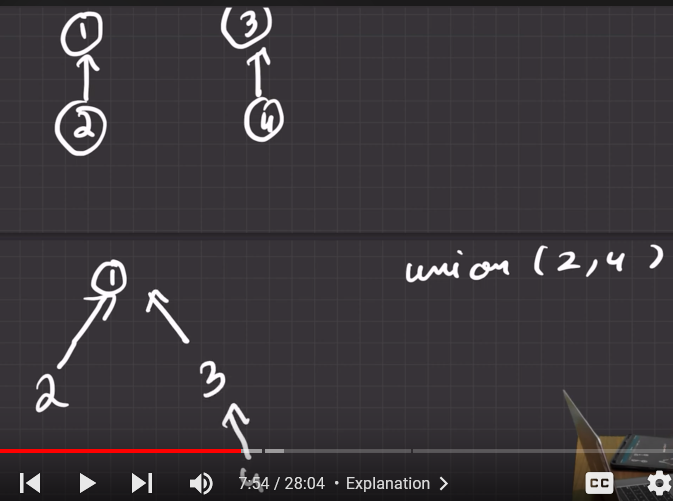 1 3
2 4
1 union (2,4)
2 3
7:54 / 28:04 • Explanation
CC